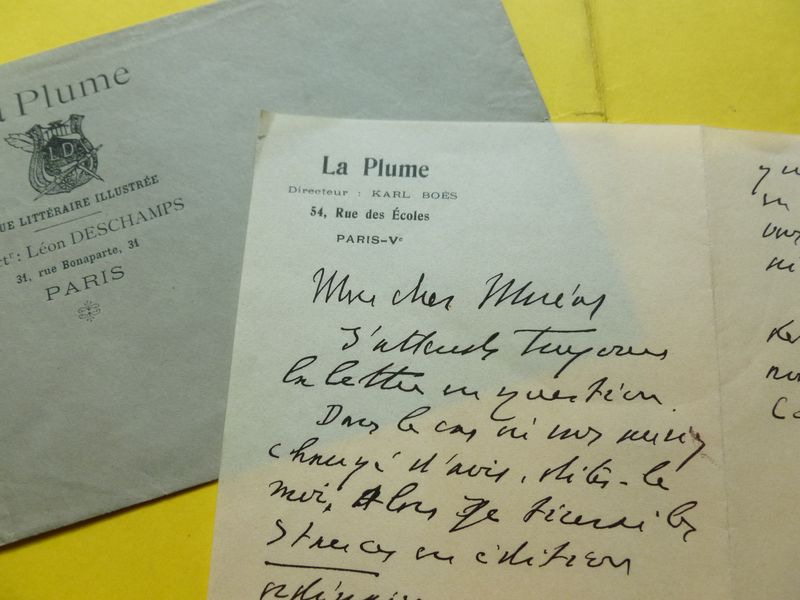 La Plume
LD
UE LITTÉRAIRE ILLUSTRÉE
ctr: Léon DESCHAMPS
31, rue Bonaparte, 31
PARIS
La Plume
Directeur : KARL BOÈS
54, Rue des Écoles
PARIS-Ve
Mon cher Moréas
J'attends toujours
la lettre en question.
Dans le cas où vous auriez
changé d'avis, dites-le
moi. Alors je tirerai les
Stances en édition